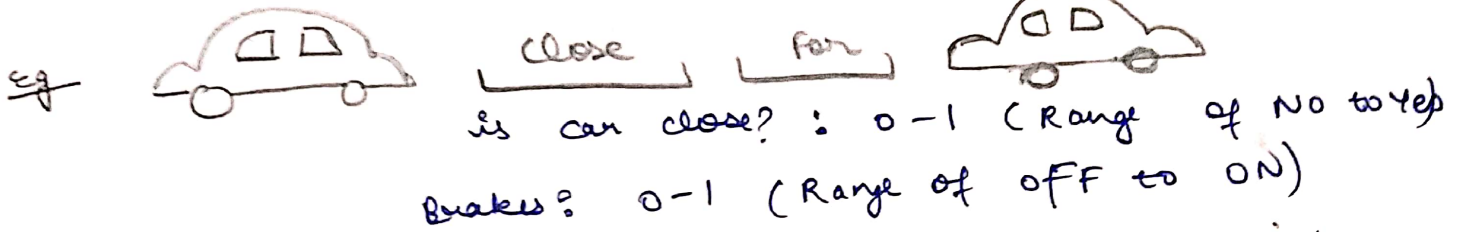 Eg close far
is car close? : 0-1 (Range of NO to Yes)
Brakes: 0-1 (Range of OFF to ON)